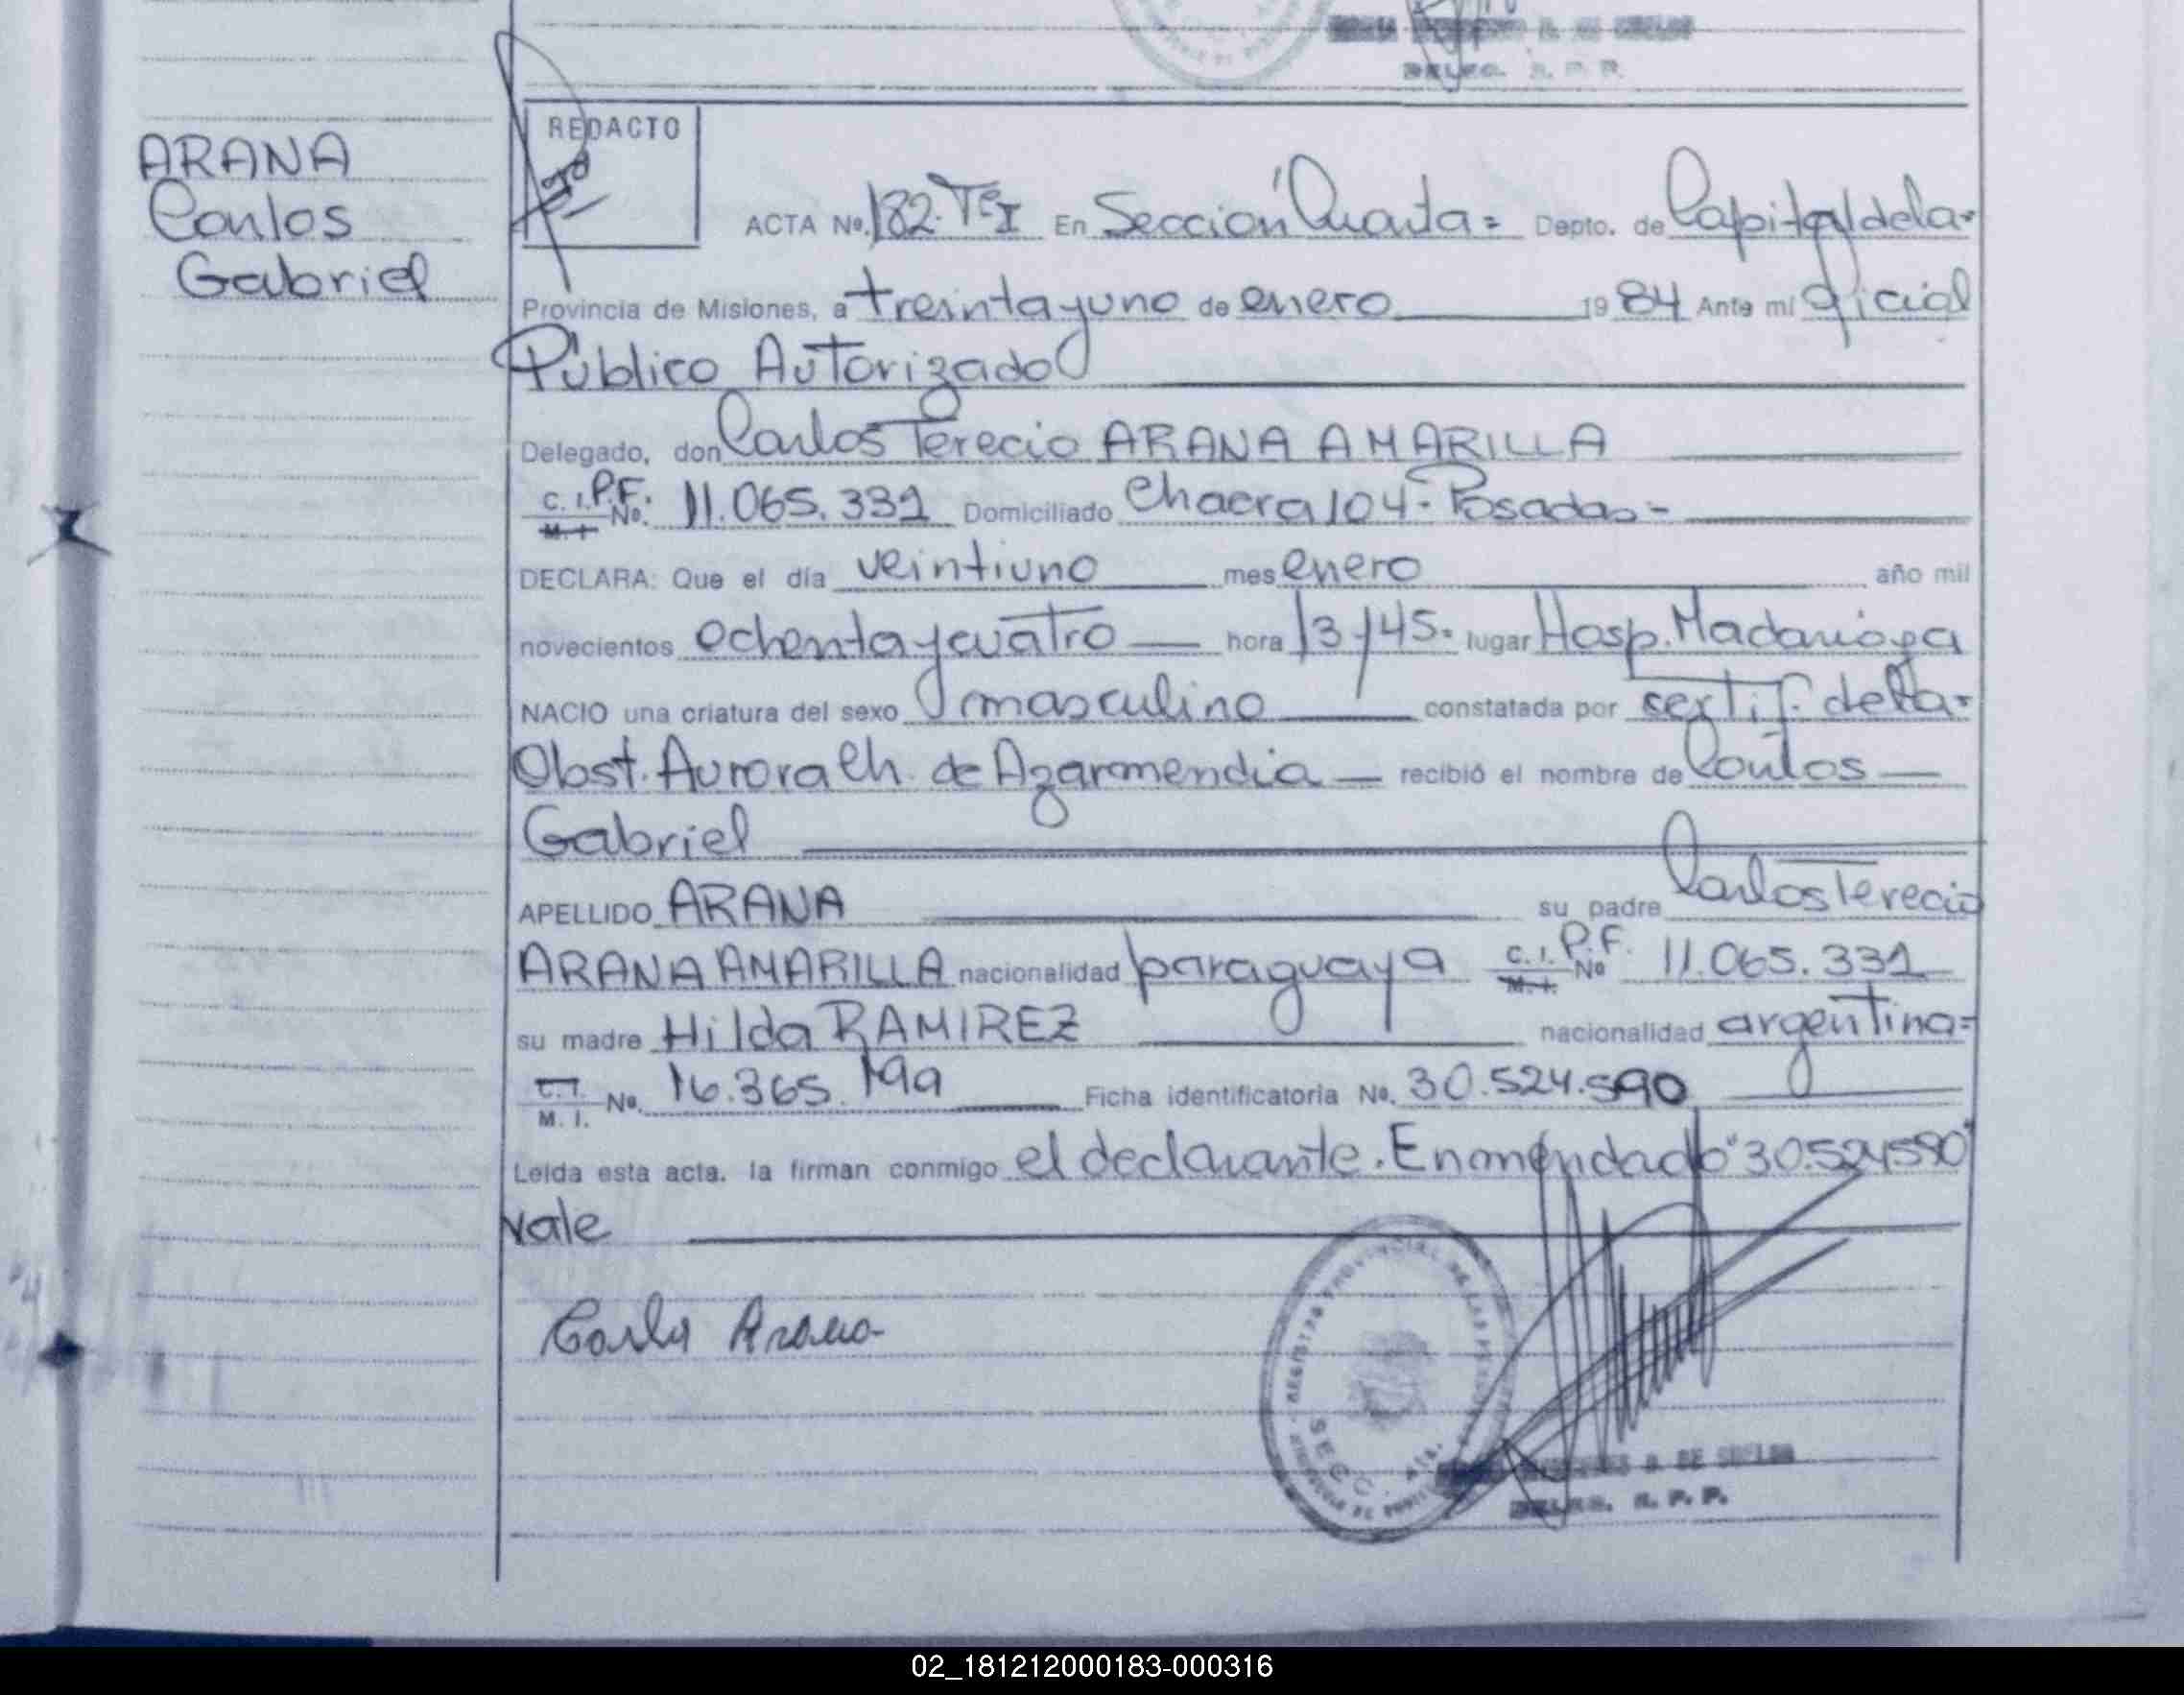 DELEG. R. P. P.
ARANA
Carlos
Gabriel
REDACTO
ACTA No. 182. Tº I En Sección Cuarta= Depto. de Capital de la-
Provincia de Misiones, a treinta y uno de enero 1984 Ante mi Oficial
Público Autorizado
Delegado, don Carlos Terecio ARANA AMARILLA
C. I. P.F. M. I. No. 11.065.331 Domiciliado Chacra 104- Posadas-
DECLARA: Que el día veintiuno mes enero año mil
novecientos ochenta y cuatro hora 13/45. lugar Hosp. Madariaga
NACIO una criatura del sexo masculino constatada por sertif. de la-
Obst. Aurora Ch. de Azarmendia recibió el nombre de Carlos
Gabriel
APELLIDO ARANA su padre Carlos Terecio
ARANA AMARILLA nacionalidad paraguaya C. I. P.F. M. I. No 11.065.331
su madre Hilda RAMIREZ nacionalidad argentina=
C. I. M. I. No. 16.365.199 Ficha identificatoria No. 30.524.590
Leída esta acta, la firman conmigo el declarante. Enmendado "30.524590"
Vale
Carlos Arana
REGISTRO PROVINCIAL DE LAS PERSONAS
SECC. 4ta.
DELEG. R. P. P.
02_181212000183-000316